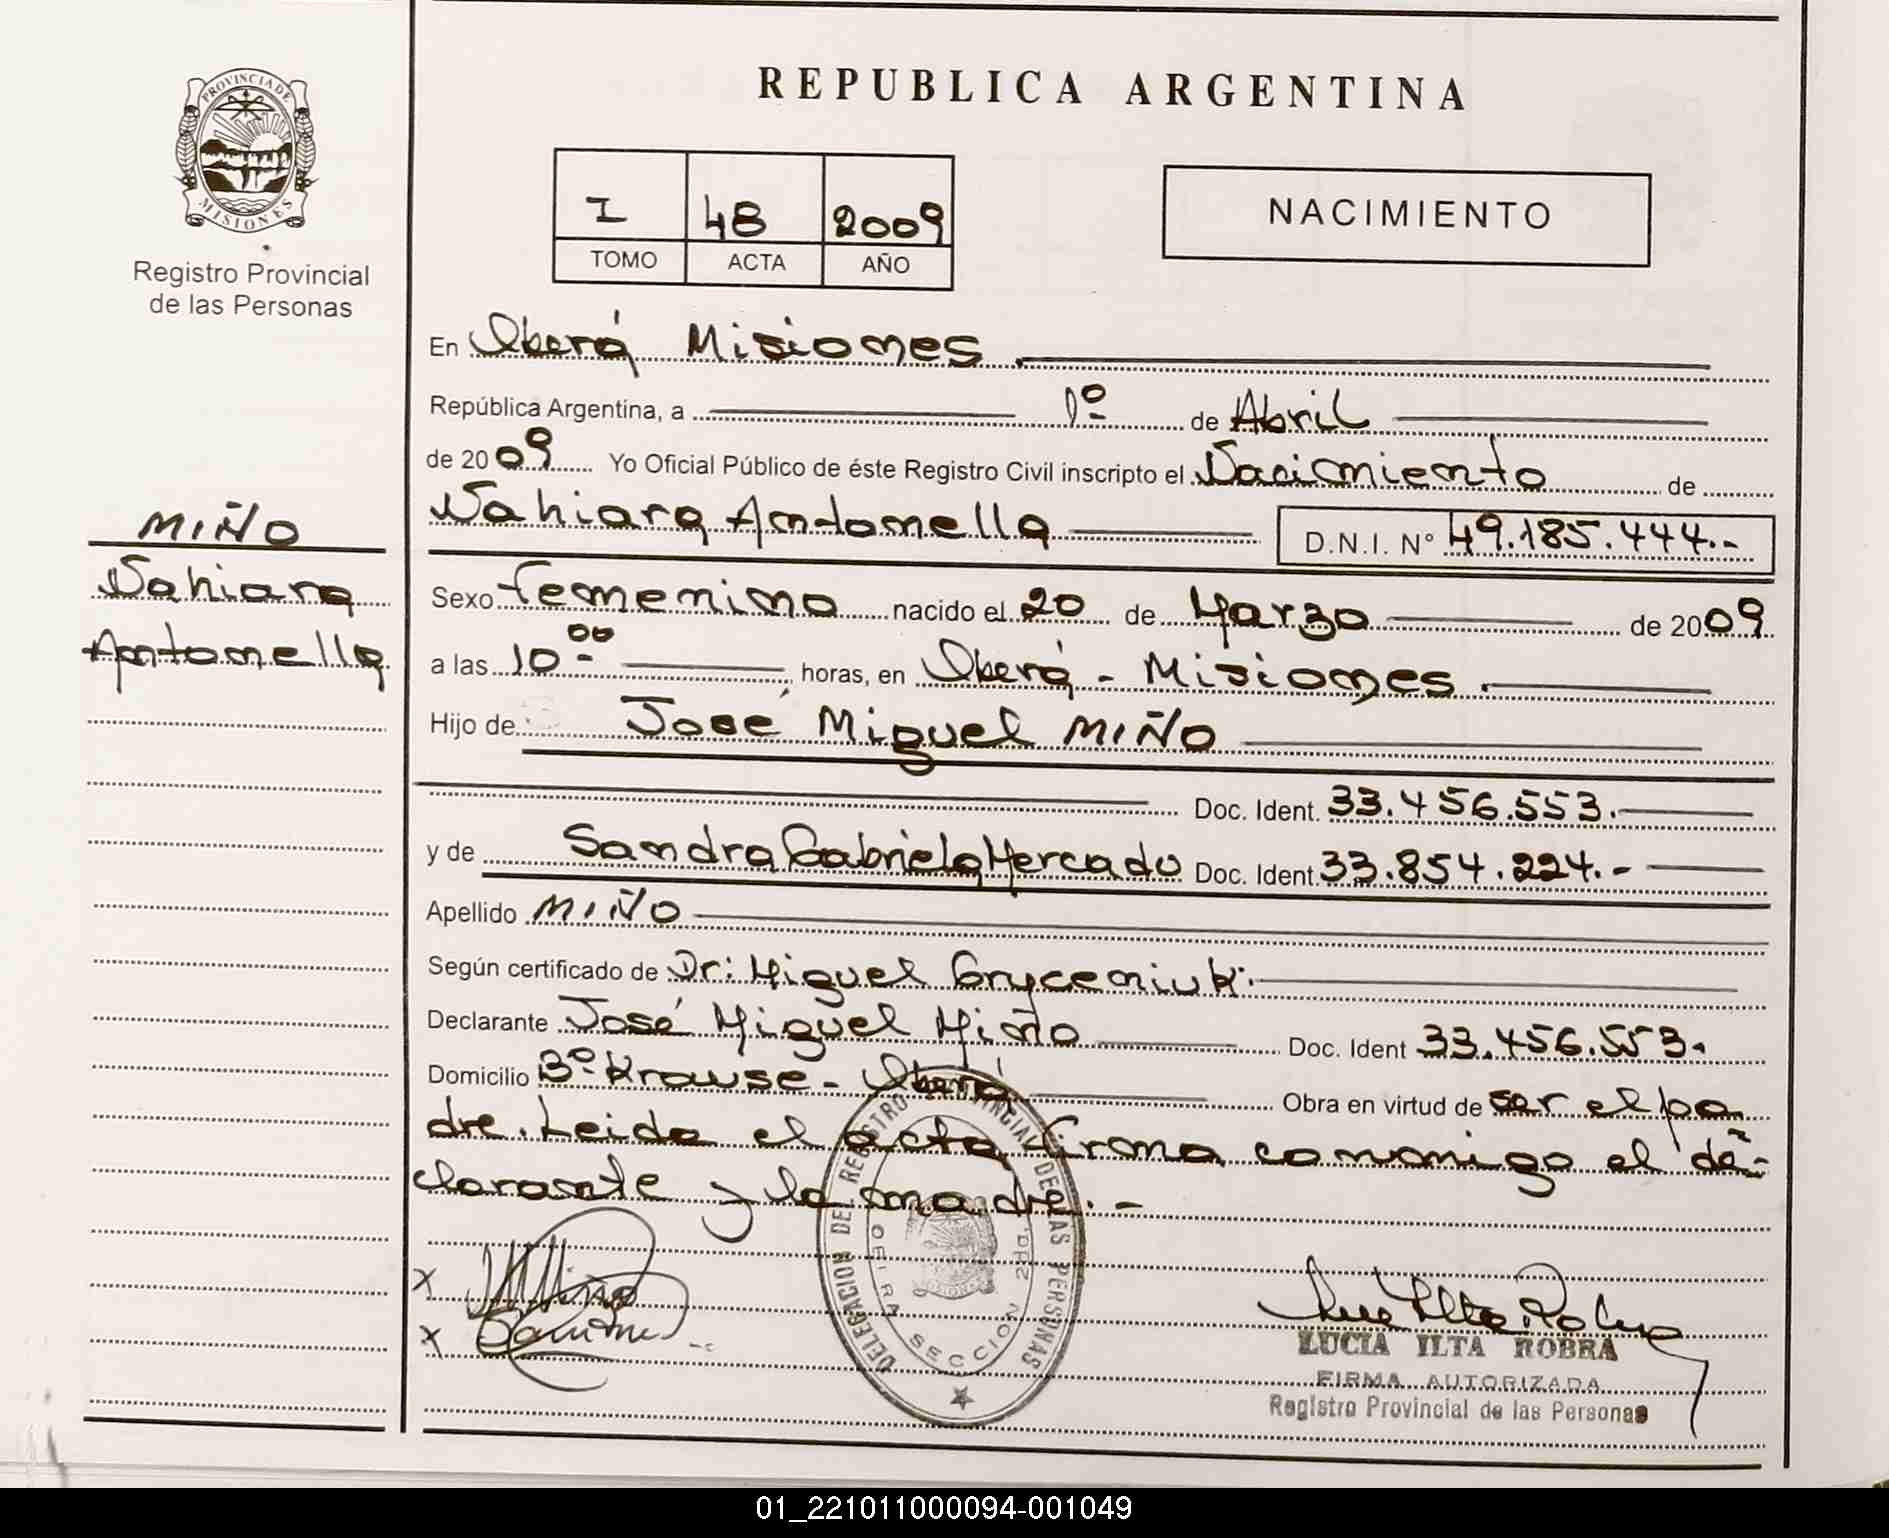 PROVINCIA DE
MISIONES
Registro Provincial
de las Personas
MIÑO
Nahiara
Antonella
REPUBLICA ARGENTINA
I 48 2009
TOMO ACTA AÑO
NACIMIENTO
En Oberá Misiones.
República Argentina, a 1º de Abril
de 2009 Yo Oficial Público de éste Registro Civil inscripto el Nacimiento de
Nahiara Antonella D.N.I. Nº 49.185.444.-
Sexo femenino nacido el 20 de Marzo de 2009
a las 10 00 horas, en Oberá - Misiones.
Hijo de José Miguel MIÑO
Doc. Ident. 33.456.553.
y de Sandra Gabriela Mercado Doc. Ident. 33.854.224.-
Apellido MIÑO
Según certificado de Dr: Miguel Gryceniuk.
Declarante José Miguel Miño Doc. Ident 33.456.553.
Domicilio Bº Krause - Oberá Obra en virtud de ser el pa
dre. Leida el acta firma conmigo el de-
clarante y la madre.-
DELEGACION DEL REGISTRO PROVINCIAL DE LAS PERSONAS
OBERA SECCION
x
x
LUCIA ILTA ROBRA
FIRMA AUTORIZADA
Registro Provincial de las Personas
01_221011000094-001049